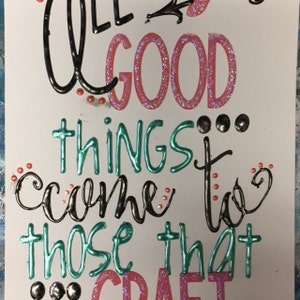 All
GOOD
things...
come to
those that
...CRAFT